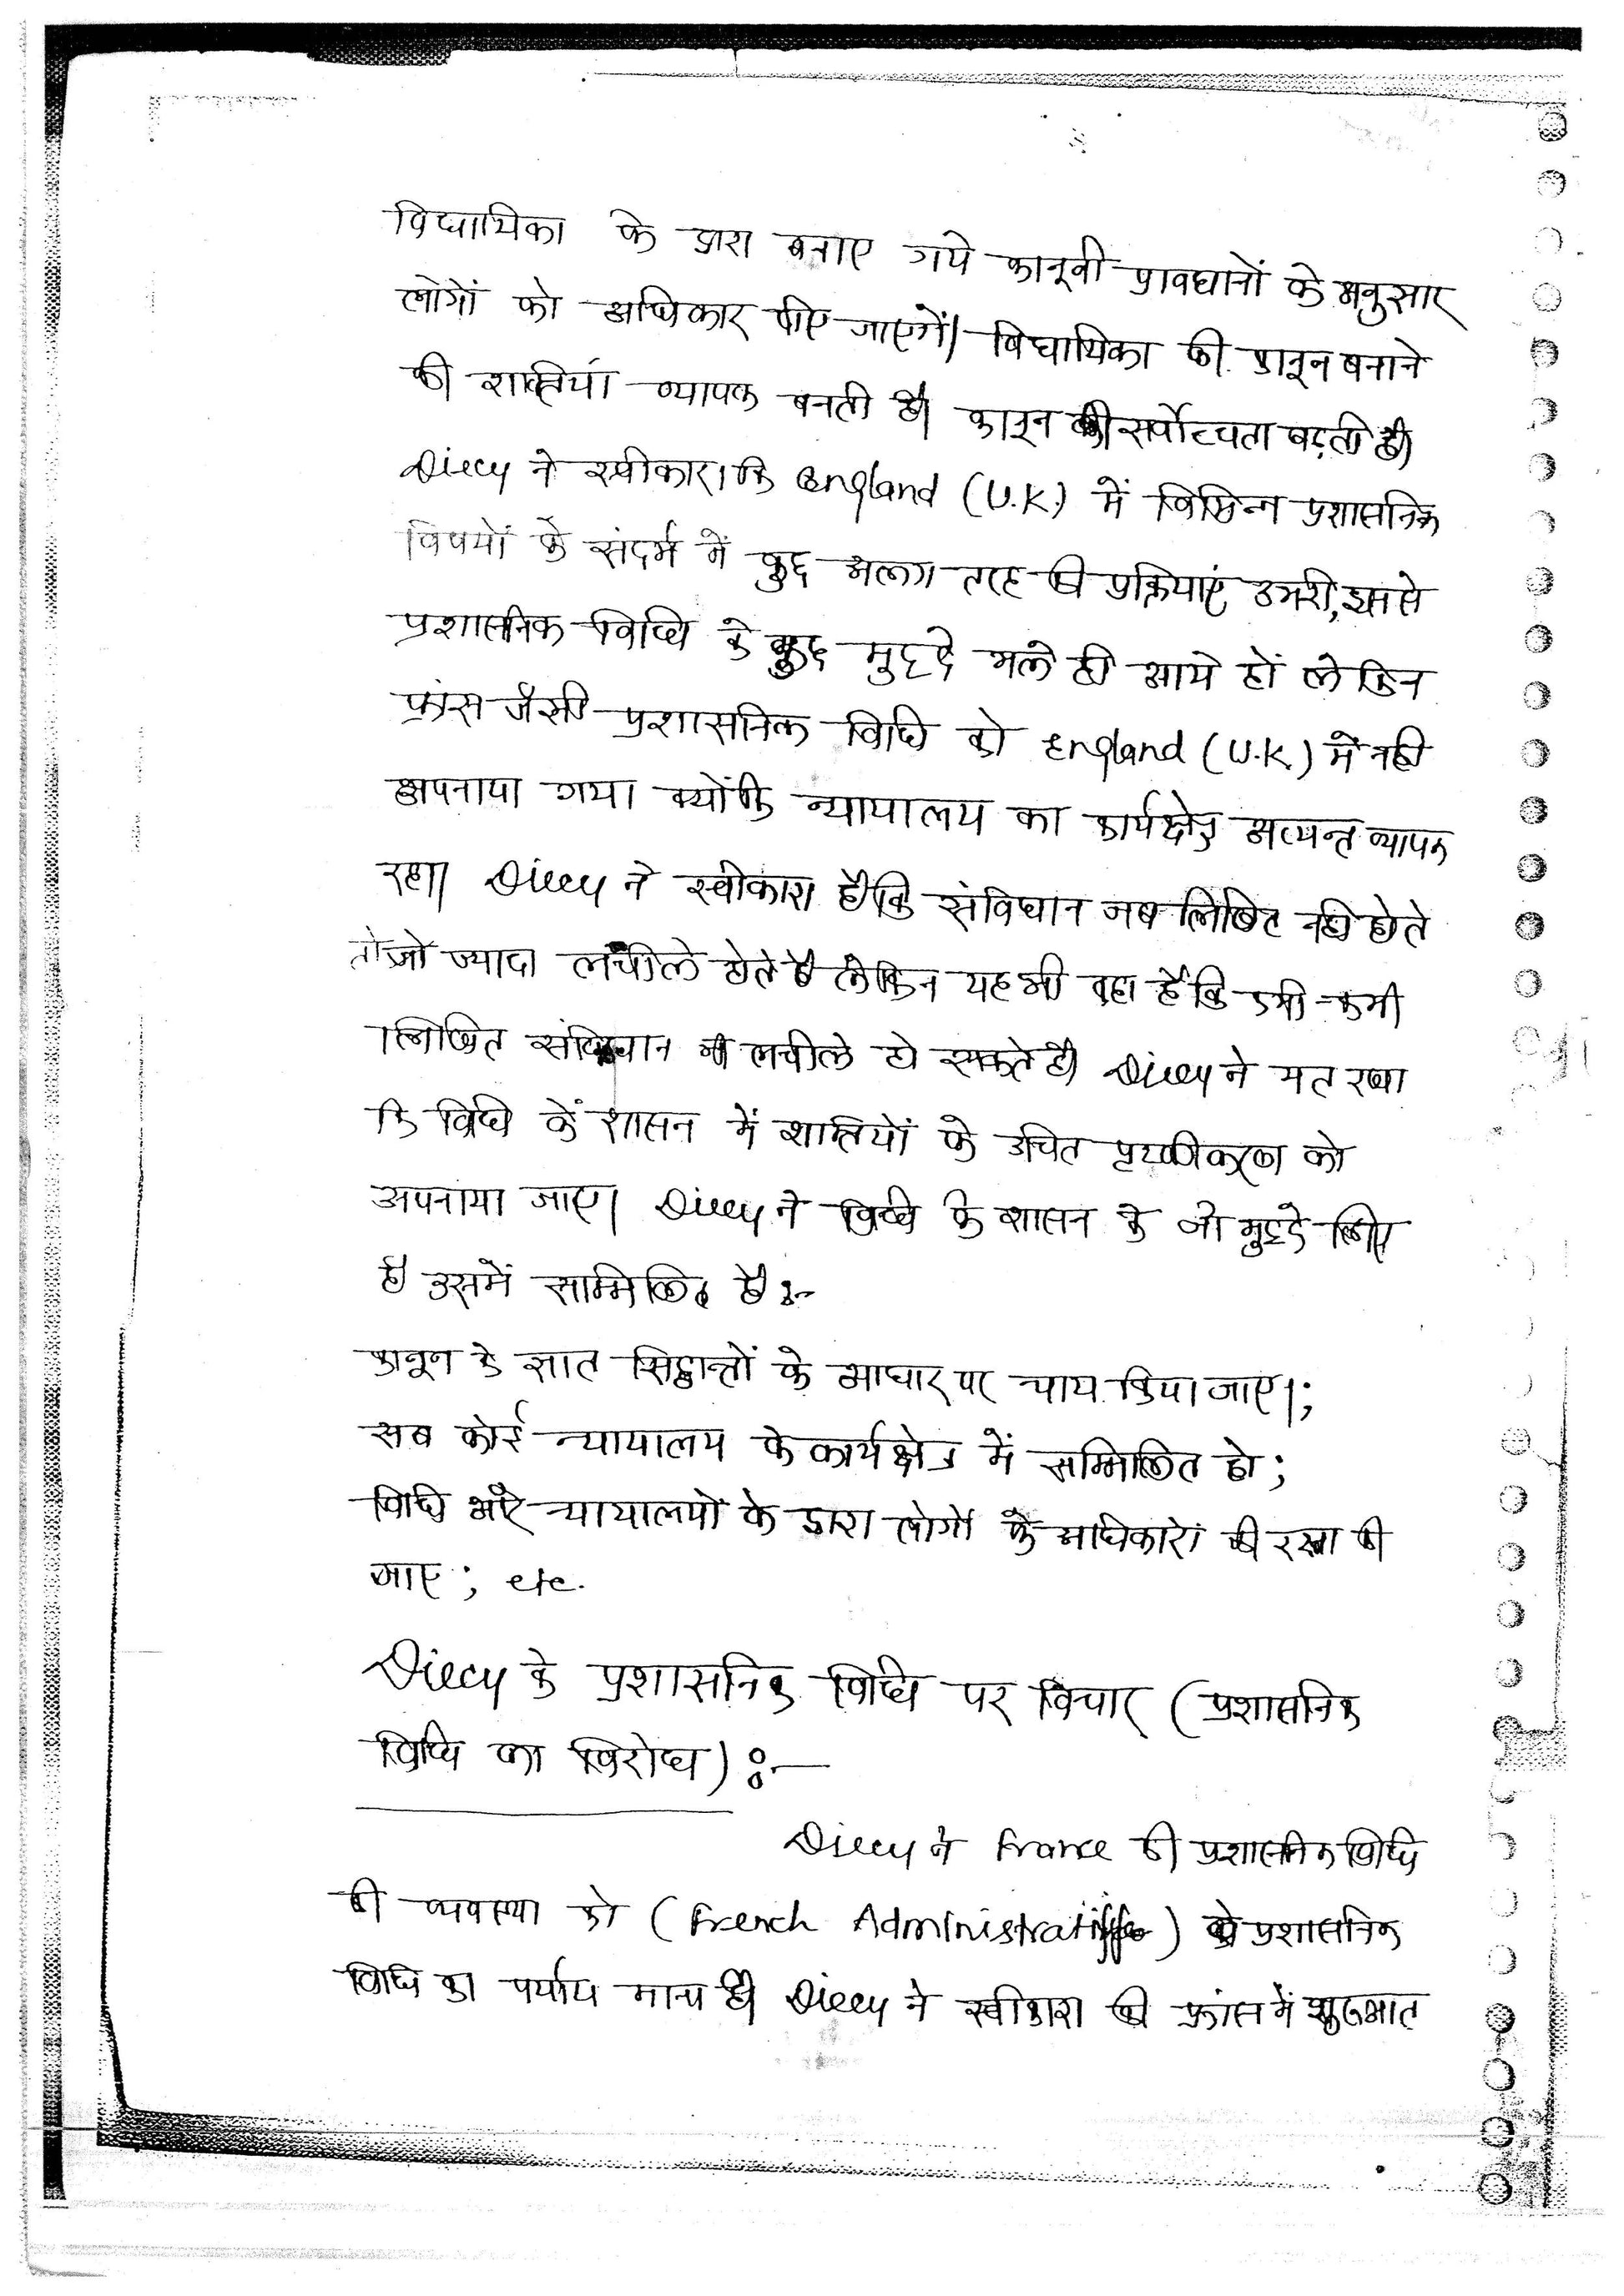 विधायिका के द्वारा बनाए गये कानूनी प्रावधानों के अनुसार
लोगों को अधिकार दीए जाएगें। विधायिका की कानून बनाने
की शक्तियां व्यापक बनती है। कानून की सर्वोच्चता बढ़ती है।
Dicey ने स्वीकारा कि England (U.K.) में विभिन्न प्रशासनिक
विषयों के संदर्भ में कुछ अलग तरह की प्रक्रियाएं उभरी, इससे
प्रशासनिक विधि के कुछ मुद्दे भले ही आये हों लेकिन
फ्रांस जैसी प्रशासनिक विधि को England (U.K.) में नही
अपनाया गया क्योंकि न्यायालय का कार्यक्षेत्र अत्यन्त व्यापक
रहा। Dicey ने स्वीकारा है कि संविधान जब लिखित नही होते
तो जो ज्यादा लचीले होते है लेकिन यह भी कहा है कि कभी-कभी
लिखित संविधान भी लचीले हो सकते है। Dicey ने मत रखा
कि विधि के शासन में शक्तियों के उचित पृथ्कीकरण को
अपनाया जाए। Dicey ने विधि के शासन के जो मुद्दे लिए
है उसमें सम्मिलित है :-
कानून के ज्ञात सिद्धान्तों के आधार पर न्याय किया जाए।;
सब कोई न्यायालय के कार्यक्षेत्र में सम्मिलित हो;
विधि और न्यायालयों के द्वारा लोगों के अधिकारों की रक्षा की
जाए; etc.
Dicey के प्रशासनिक विधि पर विचार (प्रशासनिक
विधि का विरोध) :—
Dicey ने France की प्रशासनिक विधि
की व्यवस्था को (French Administratiffe) को प्रशासनिक
विधि का पर्याय माना है। Dicey ने स्वीकारा की फ्रांस में शुरुआत